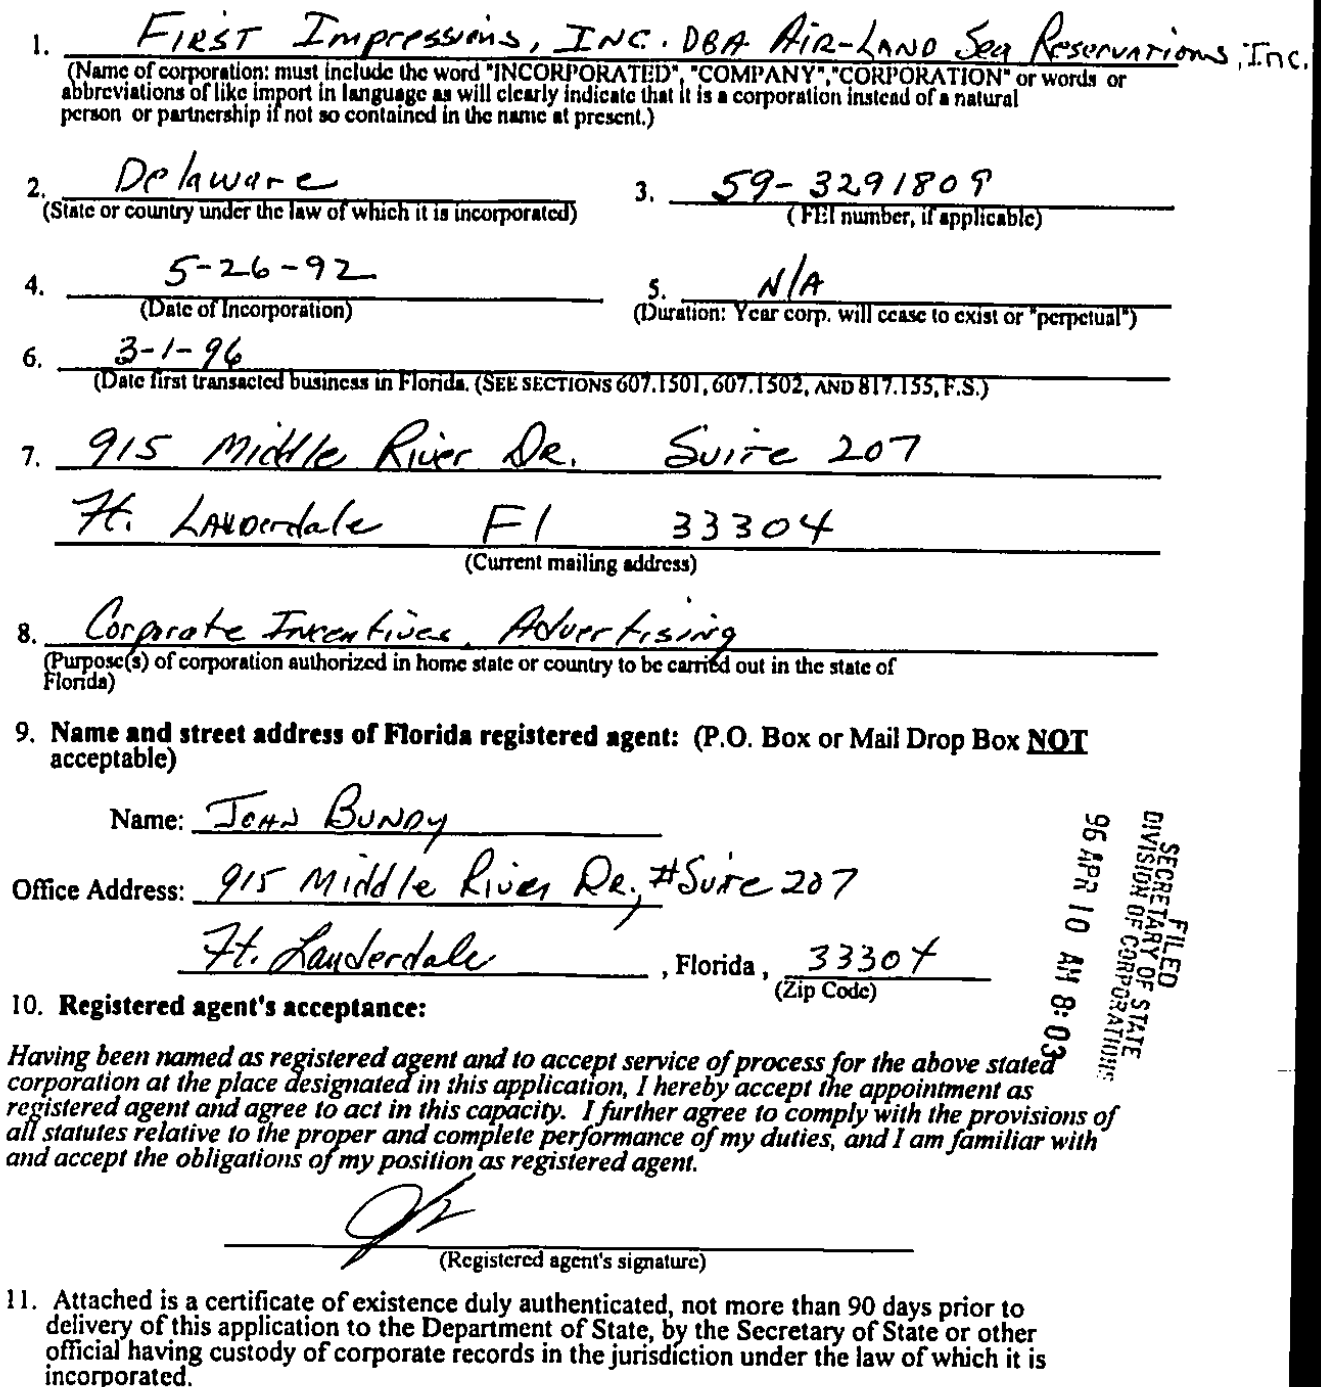 1. FIRST Impressions, INC. DBA AIR-LAND Sea Reservations, Inc.
(Name of corporation: must include the word "INCORPORATED", "COMPANY","CORPORATION" or words or
abbreviations of like import in language as will clearly indicate that it is a corporation instead of a natural
person or partnership if not so contained in the name at present.)
2. Delaware 3. 59-3291809
(State or country under the law of which it is incorporated) ( FEI number, if applicable)
4. 5-26-92 5. N/A
(Date of Incorporation) (Duration: Year corp. will cease to exist or "perpetual")
6. 3-1-96
(Date first transacted business in Florida. (SEE SECTIONS 607.1501, 607.1502, AND 817.155, F.S.)
7. 915 Middle River DR. Suite 207
Ft. LAUDerdale Fl 33304
(Current mailing address)
8. Corporate Incentives, Advertising
(Purpose(s) of corporation authorized in home state or country to be carried out in the state of
Florida)
9. Name and street address of Florida registered agent: (P.O. Box or Mail Drop Box NOT
acceptable)
Name: JOHN BUNDY
Office Address: 915 Middle River DR., #Suite 207
Ft. Lauderdale , Florida , 33304
(Zip Code)
FILED
SECRETARY OF STATE
DIVISION OF CORPORATIONS
96 APR 10 AM 8:03
10. Registered agent's acceptance:
Having been named as registered agent and to accept service of process for the above stated
corporation at the place designated in this application, I hereby accept the appointment as
registered agent and agree to act in this capacity. I further agree to comply with the provisions of
all statutes relative to the proper and complete performance of my duties, and I am familiar with
and accept the obligations of my position as registered agent.
(Registered agent's signature)
11. Attached is a certificate of existence duly authenticated, not more than 90 days prior to
delivery of this application to the Department of State, by the Secretary of State or other
official having custody of corporate records in the jurisdiction under the law of which it is
incorporated.